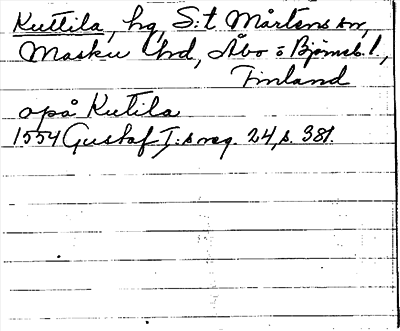 Kuttila, hg, S:t Mårtens sn,
Masku hd, Åbo o Bjørneb. l.,
Finland
opå Kutila
1554 Gustaf I:s reg. 24, s. 381.